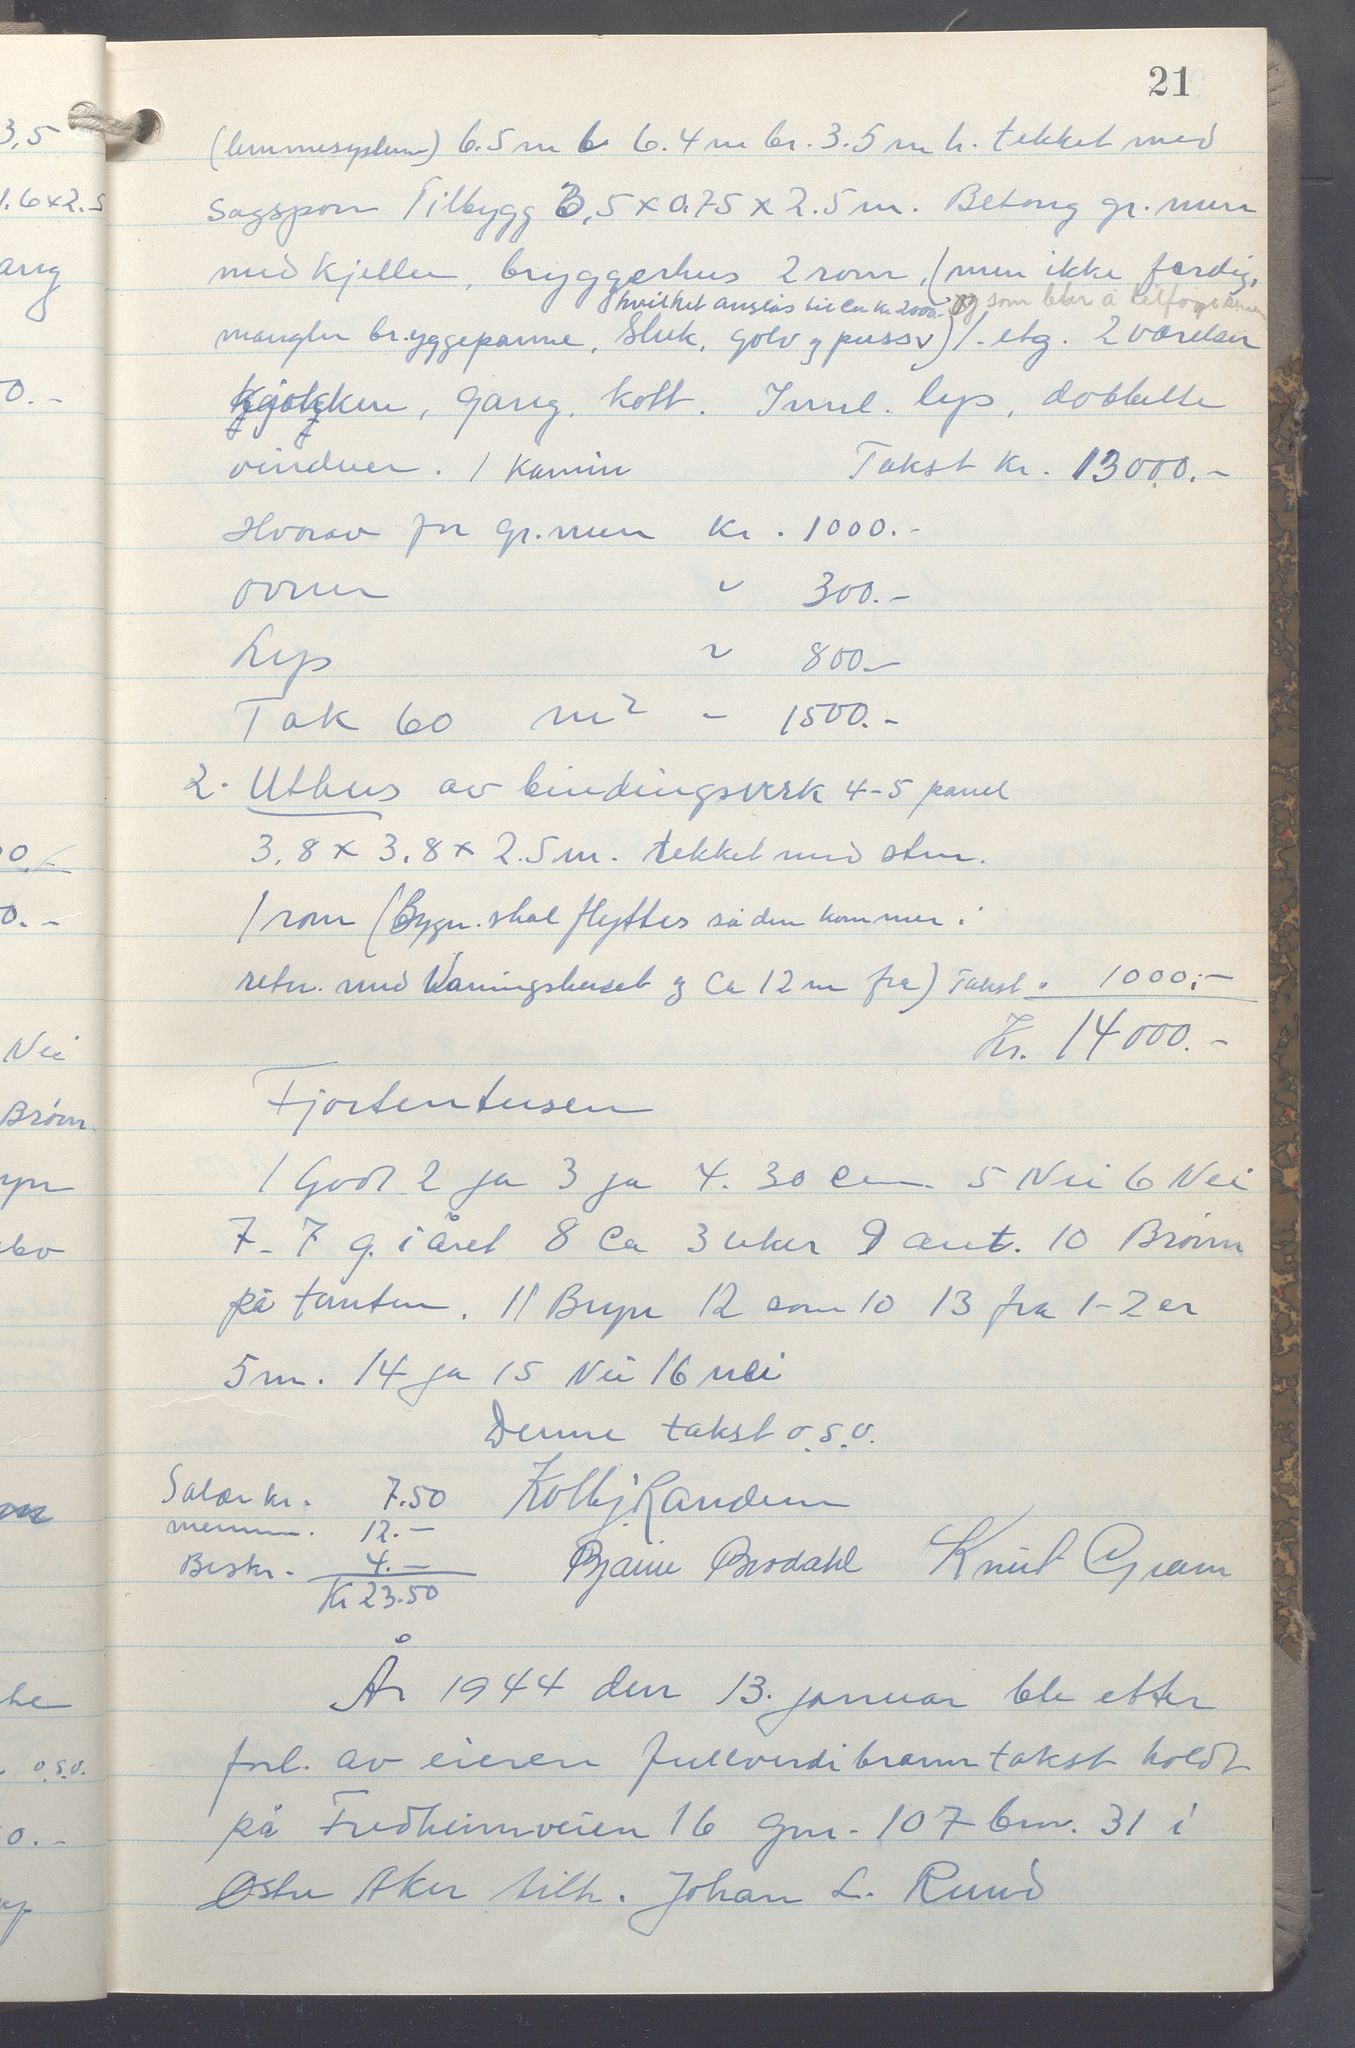 21
(lemmesystem) 6.5 m l 6.4 m br. 3.5 m h. tekket med
sagspon Tilbygg 3,5 x 0.75 x 2.5 m. Betong gr. mur
med kjeller, bryggerhus 2 rom, (men ikke ferdig,
hvilket anslås til ca kr. 2000.- og som blir å tilføye senere
mangler bryggepanne, sluk, golv og puss) 1. etg. 2 værelser
kjøkken, gang, kott. Innl. lys, dobbelte
vinduer. 1 kamin Takst kr. 13000.-
Hvorav for gr. mur kr. 1000.-
ovner " 300.-
Lys " 800.-
Tak 60 m² - 1500.-
2. Uthus av bindingsverk 4-5 panel
3,8 x 3,8 x 2.5 m. tekket med sten.
1 rom (Bygn. skal flyttes så den kommer i
retn. med Våningshuset og ca 12 m fra) Takst " 1000.-
Kr. 14000.-
Fjortentusen
1 Godt 2 ja 3 ja 4. 30 cm. 5 Nei 6 Nei
7. 7 g. i året 8 Ca 3 uker 9 ant. 10 Brønn
på tomten. 11 Bryn 12 som 10 13 fra 1-2 er
5 m. 14 ja 15 Nei 16 nei
Denne takst o.s.v.
Salær kr. 7.50 Kolbj. Randem
12.-
Beskr. 4.- Bjarne Brodahl Knut Gram
Kr 23.50
År 1944 den 13. januar ble etter
forl. av eieren fullverdibranntakst holdt
på Fredheimveien 16 gnr. 107 bnr. 31 i
Østre Aker tilh. Johan L. Ruud
3,5
1.6x2.5
ang
0.-
0.-
0.-
Nei
Brønn
o.s.v.
0.-